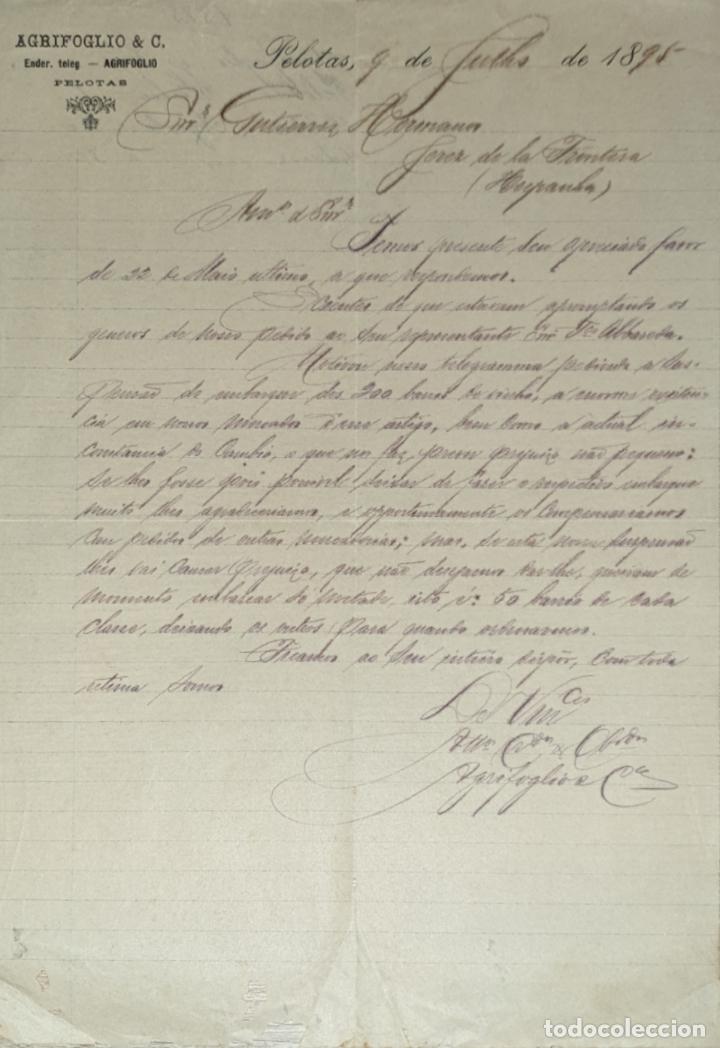 AGRIFOGLIO & C.
Ender. teleg — AGRIFOGLIO
PELOTAS
Pelotas, 9 de Julho de 1895
Snrs Gutierrez Hermanos
Jerez de la Frontera
(Hespanha)
Amos e Snrs
Temos presente seu apreciado favor
de 22 de Maio ultimo, a que respondemos.
Scientes de que estavam apromptando os
generos de nosso pedido ao seu representante Snr Fco Albareda.
Motivou nosso telegramma pedindo a sus-
pensão de embarque dos 200 barris de vinho, a enorme existen-
cia em nossos mercados d'esse artigo, bem como a actual in-
constancia do Cambio, o que nos faz prejuizo não pequeno:
Se lhes fosse pois possivel deixar de fazer o respectivo embarque
muito lhes agradeceriamos, e opportunamente os compensariamos
com pedidos de outras mercadorias; mas, se esta nossa suspensão
lhes vai causar prejuizo, que não desejamos dar-lhe, queiram de
momento embarcar só metade isto é: 50 barris de cada
classe, deixando os outros para quando ordenarmos.
Ficamos ao seu inteiro dispôr, com toda
estima somos
De Vmces
Attos Cros & Obrdos
Agrifoglio & Cia
todocoleccion